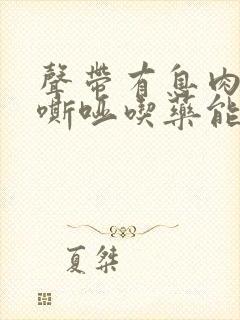 聲帶有息肉
嘶啞喫藥能
夏桀